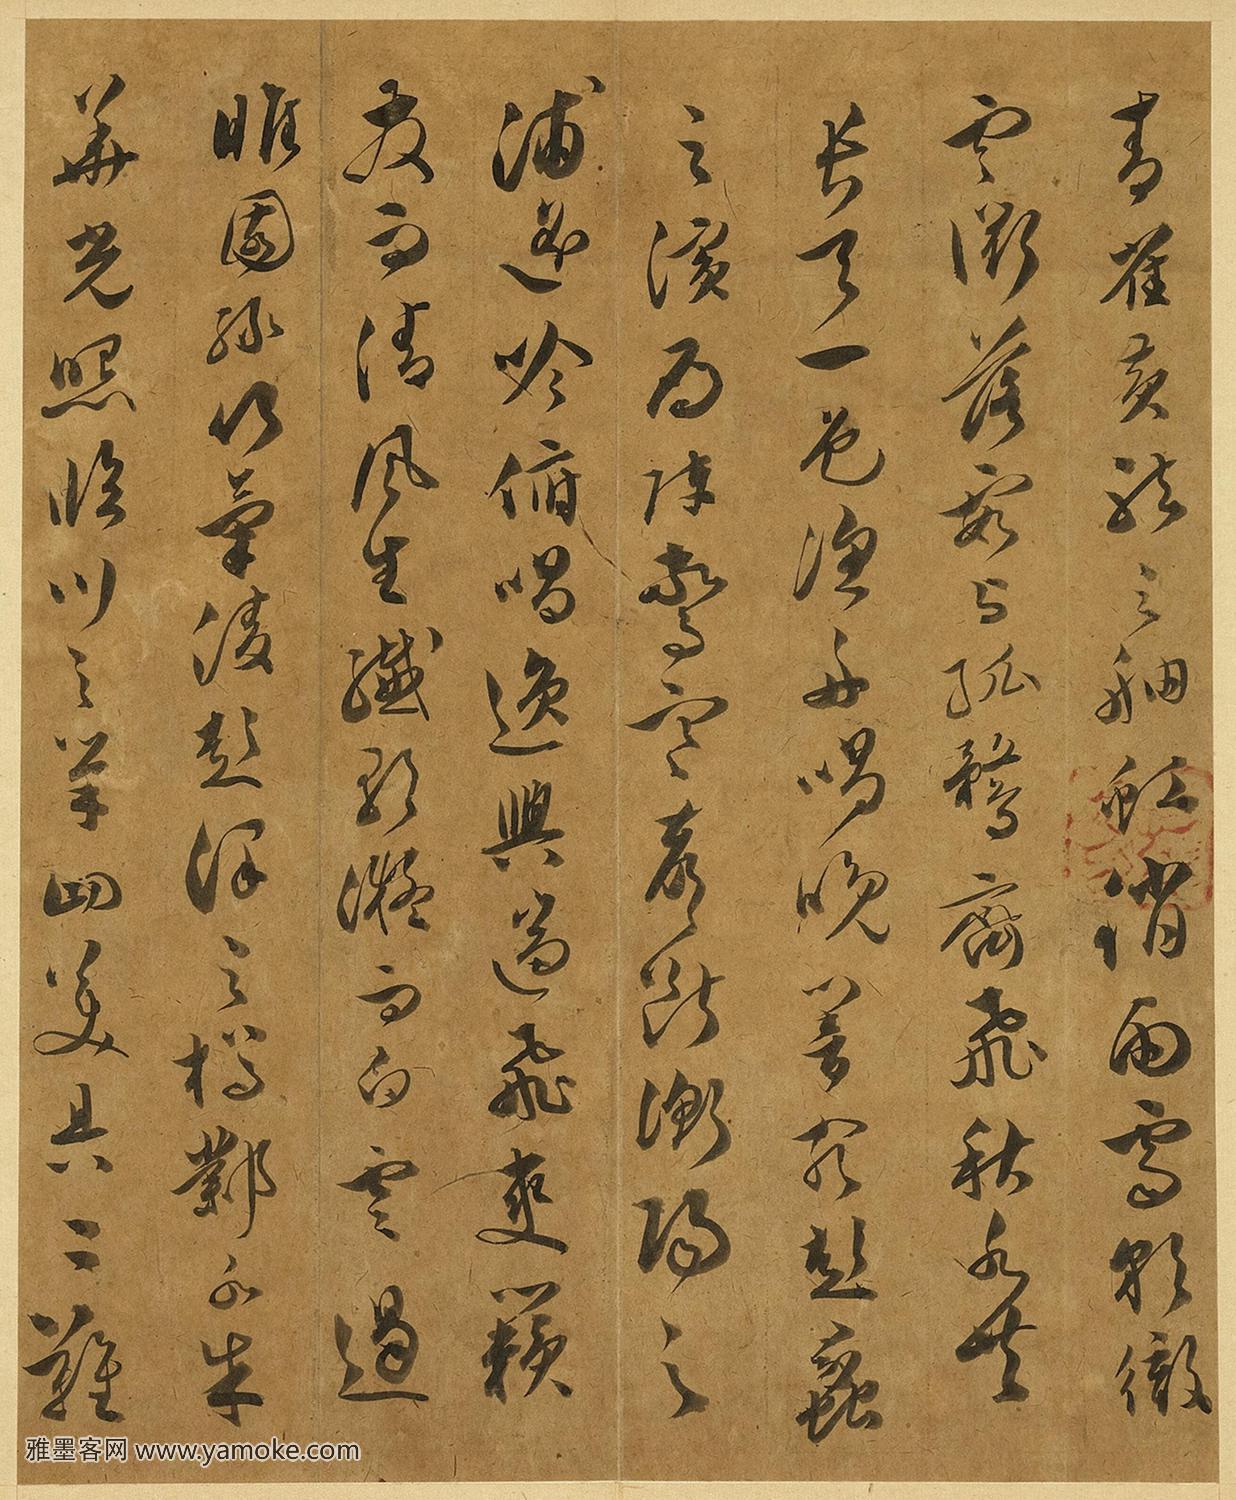 青雀黃龍之舳虹銷雨霽彩徹
雲衢落霞與孤鶩齊飛秋水共
長天一色漁舟唱晚響窮彭蠡
之濱雁陣驚寒聲斷衡陽之
浦遙吟俯唱逸興遄飛爽籟
發而清風生纖歌凝而白雲遏
睢園綠竹氣凌彭澤之樽鄴水朱
華光照臨川之筆四美具二難
雅墨客网 www.yamoke.com